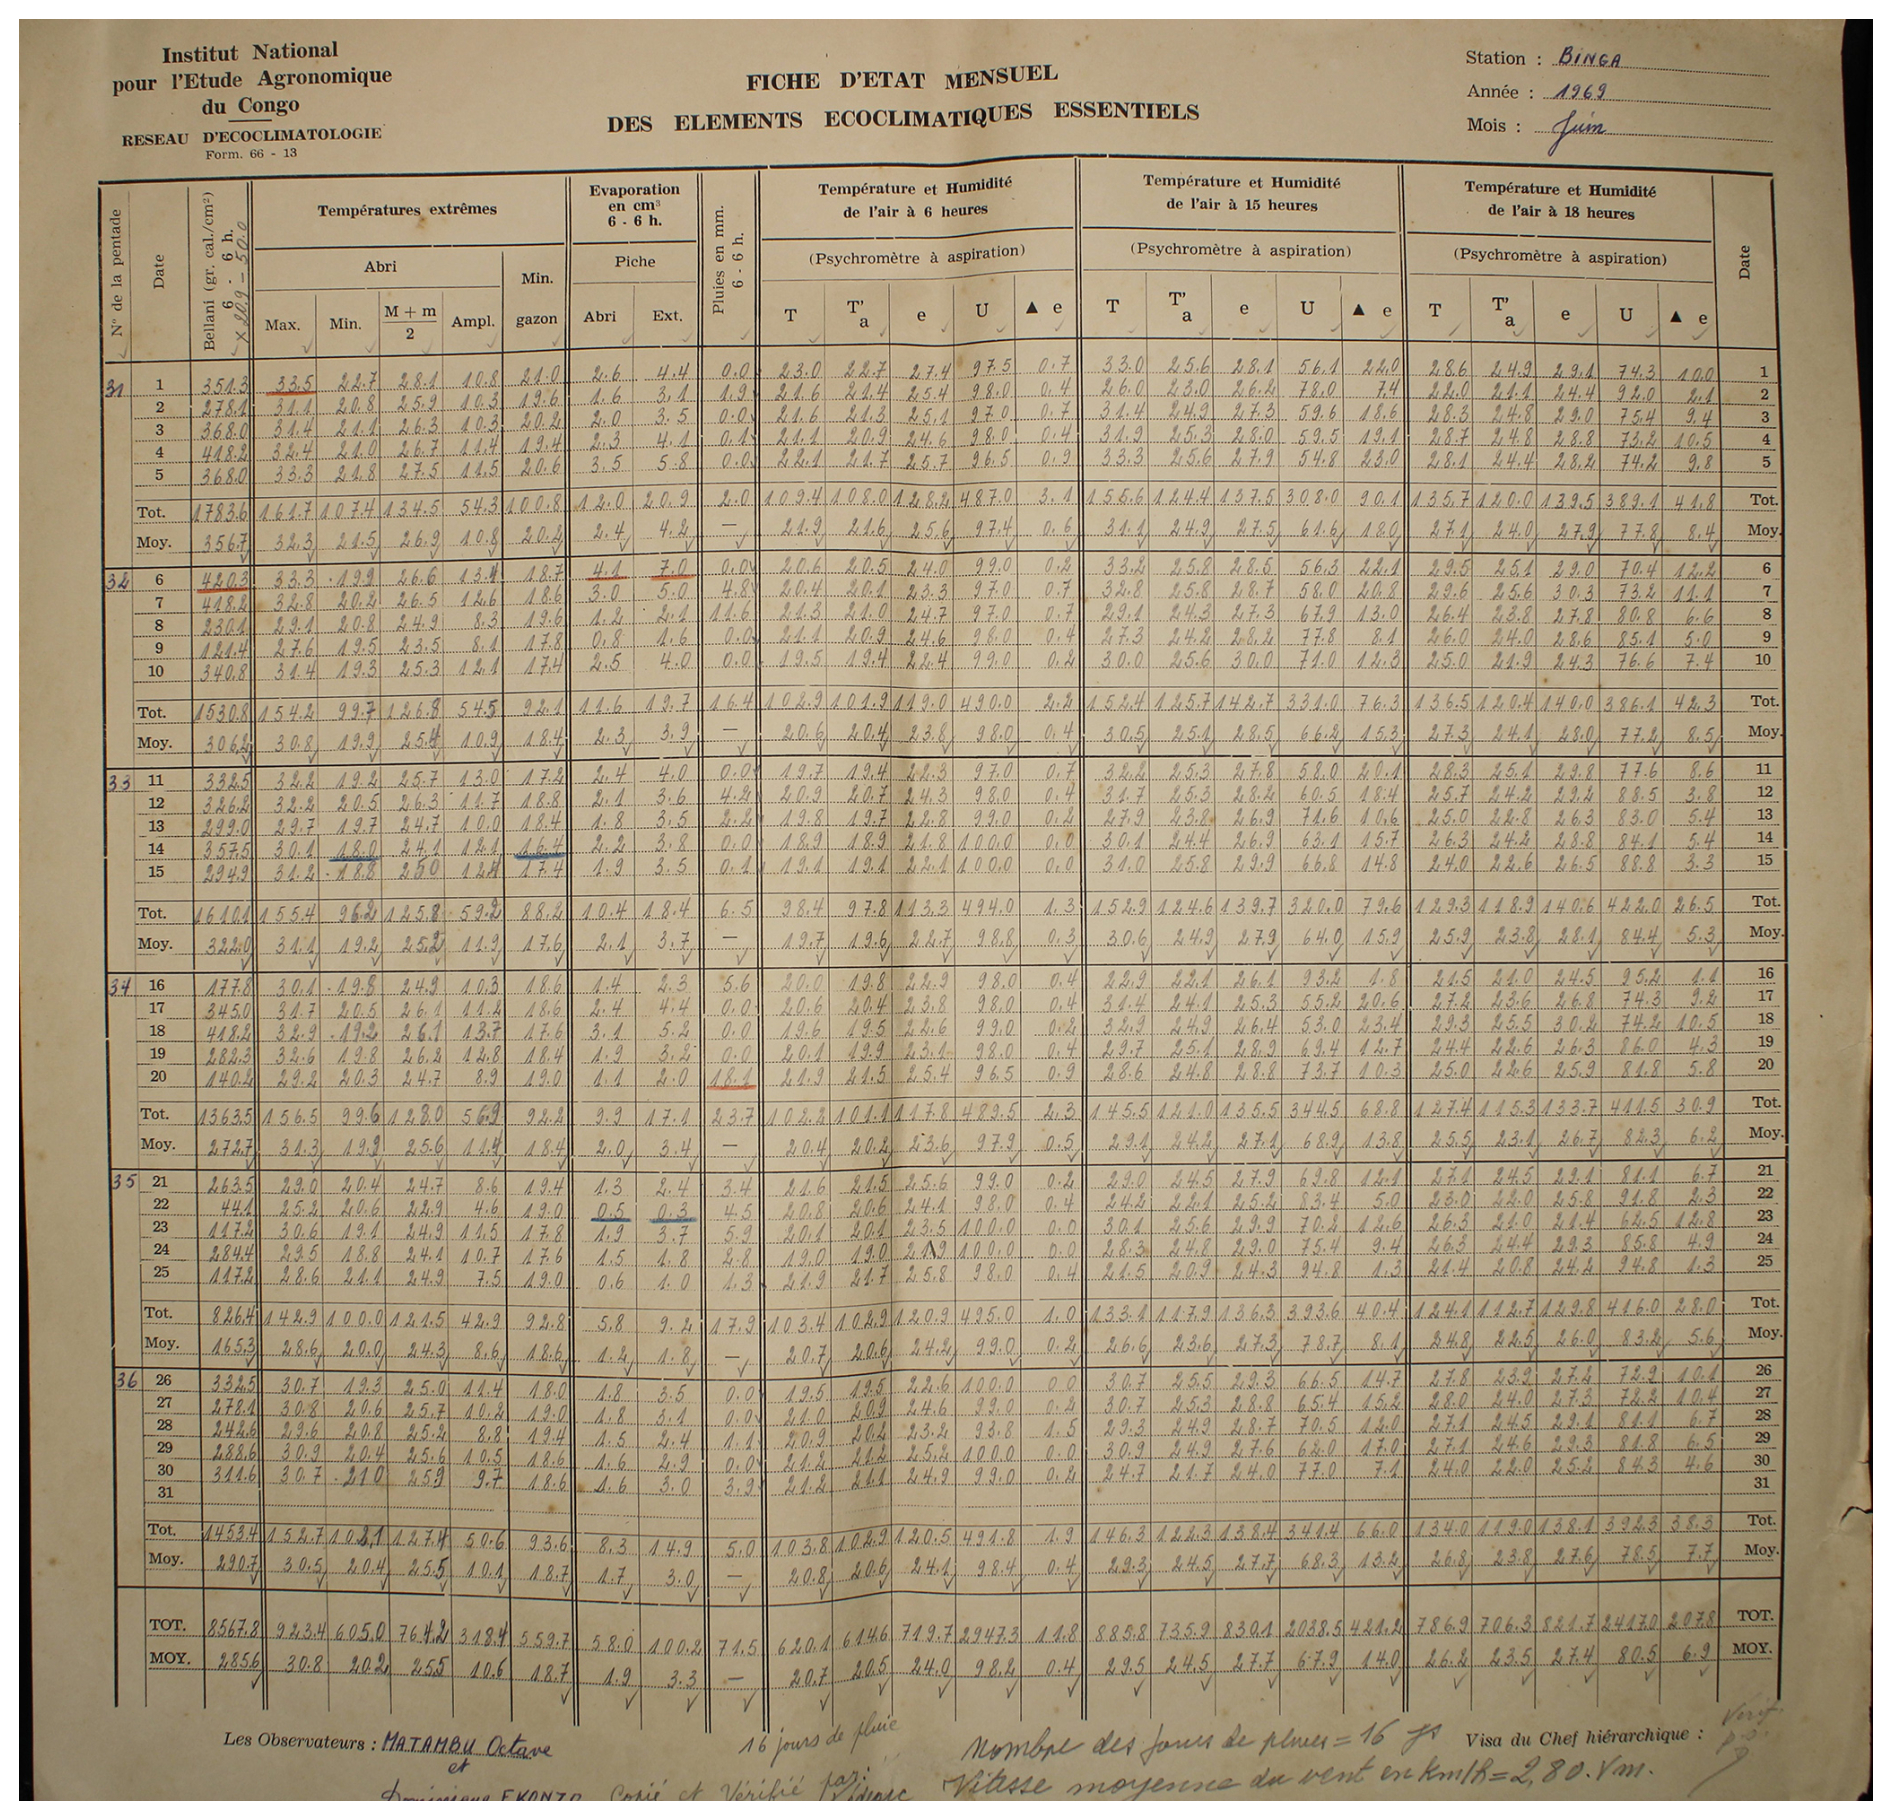 Institut National
pour l'Etude Agronomique
du Congo
RESEAU D'ECOCLIMATOLOGIE
Form. 66 - 13
FICHE D'ETAT MENSUEL
DES ELEMENTS ECOCLIMATIQUES ESSENTIELS
Station : BINGA
Année : 1969
Mois : Juin
N° de la pentade
Date
Bellani (gr. cal./cm²) 6 - 6 h. × 20.9 - 50.0
Températures extrêmes
Abri
Max. Min. M + m / 2 Ampl.
Min. gazon
Evaporation en cm³ 6 - 6 h.
Piche
Abri Ext.
Pluies en mm. 6 - 6 h.
Température et Humidité de l'air à 6 heures
(Psychromètre à aspiration)
T T'a e U ▲ e
Température et Humidité de l'air à 15 heures
(Psychromètre à aspiration)
T T'a e U ▲ e
Température et Humidité de l'air à 18 heures
(Psychromètre à aspiration)
T T'a e U ▲ e
Date
31 1 351.3 33.5 22.7 28.1 10.8 21.0 2.6 4.4 0.0 23.0 22.7 27.4 97.5 0.7 33.0 25.6 28.1 56.1 22.0 28.6 24.9 29.1 74.3 10.0 1
2 278.1 31.1 20.8 25.9 10.3 19.6 1.6 3.1 1.9 21.6 21.4 25.4 98.0 0.4 26.0 23.0 26.2 78.0 7.4 22.0 21.1 24.4 92.0 2.1 2
3 368.0 31.4 21.1 26.3 10.3 20.2 2.0 3.5 0.0 21.6 21.3 25.1 97.0 0.7 31.4 24.9 27.3 59.6 18.6 28.3 24.8 29.0 75.4 9.4 3
4 418.2 32.4 21.0 26.7 11.4 19.4 2.3 4.1 0.1 21.1 20.9 24.6 98.0 0.4 31.9 25.3 28.0 59.5 19.1 28.7 24.8 28.8 73.2 10.5 4
5 368.0 33.3 21.8 27.5 11.5 20.6 3.5 5.8 0.0 22.1 21.7 25.7 96.5 0.9 33.3 25.6 27.9 54.8 23.0 28.1 24.4 28.2 74.2 9.8 5
Tot. 1783.6 161.7 107.4 134.5 54.3 100.8 12.0 20.9 2.0 109.4 108.0 128.2 487.0 3.1 155.6 124.4 137.5 308.0 90.1 135.7 120.0 139.5 389.1 41.8 Tot.
Moy. 356.7 32.3 21.5 26.9 10.8 20.2 2.4 4.2 — 21.9 21.6 25.6 97.4 0.6 31.1 24.9 27.5 61.6 18.0 27.1 24.0 27.9 77.8 8.4 Moy.
32 6 420.3 33.3 19.9 26.6 13.4 18.7 4.1 7.0 0.0 20.6 20.5 24.0 99.0 0.2 33.2 25.8 28.5 56.3 22.1 29.5 25.1 29.0 70.4 12.2 6
7 418.2 32.8 20.2 26.5 12.6 18.6 3.0 5.0 4.8 20.4 20.1 23.3 97.0 0.7 32.8 25.8 28.7 58.0 20.8 29.6 25.6 30.3 73.2 11.1 7
8 230.1 29.1 20.8 24.9 8.3 19.6 1.2 2.1 11.6 21.3 21.0 24.7 97.0 0.7 29.1 24.3 27.3 67.9 13.0 26.4 23.8 27.8 80.8 6.6 8
9 121.4 27.6 19.5 23.5 8.1 17.8 0.8 1.6 0.0 21.1 20.9 24.6 98.0 0.4 27.3 24.2 28.2 77.8 8.1 26.0 24.0 28.6 85.1 5.0 9
10 340.8 31.4 19.3 25.3 12.1 17.4 2.5 4.0 0.0 19.5 19.4 22.4 99.0 0.2 30.0 25.6 30.0 71.0 12.3 25.0 21.9 24.3 76.6 7.4 10
Tot. 1530.8 154.2 99.7 126.8 54.5 92.1 11.6 19.7 16.4 102.9 101.9 119.0 490.0 2.2 152.4 125.7 142.7 331.0 76.3 136.5 120.4 140.0 386.1 42.3 Tot.
Moy. 306.2 30.8 19.9 25.4 10.9 18.4 2.3 3.9 — 20.6 20.4 23.8 98.0 0.4 30.5 25.1 28.5 66.2 15.3 27.3 24.1 28.0 77.2 8.5 Moy.
33 11 332.5 32.2 19.2 25.7 13.0 17.2 2.4 4.0 0.0 19.7 19.4 22.3 97.0 0.7 32.2 25.3 27.8 58.0 20.1 28.3 25.1 29.8 77.6 8.6 11
12 326.2 32.2 20.5 26.3 11.7 18.8 2.1 3.6 4.2 20.9 20.7 24.3 98.0 0.4 31.7 25.3 28.2 60.5 18.4 25.7 24.2 29.2 88.5 3.8 12
13 299.0 29.7 19.7 24.7 10.0 18.4 1.8 3.5 2.2 19.8 19.7 22.8 99.0 0.2 27.9 23.8 26.9 71.6 10.6 25.0 22.8 26.3 83.0 5.4 13
14 357.5 30.1 18.0 24.1 12.1 16.4 2.2 3.8 0.0 18.9 18.9 21.8 100.0 0.0 30.1 24.4 26.9 63.1 15.7 26.3 24.2 28.8 84.1 5.4 14
15 294.9 31.2 18.8 25.0 12.4 17.4 1.9 3.5 0.1 19.1 19.1 22.1 100.0 0.0 31.0 25.8 29.9 66.8 14.8 24.0 22.6 26.5 88.8 3.3 15
Tot. 1610.1 155.4 96.2 125.8 59.2 88.2 10.4 18.4 6.5 98.4 97.8 113.3 494.0 1.3 152.9 124.6 139.7 320.0 79.6 129.3 118.9 140.6 422.0 26.5 Tot.
Moy. 322.0 31.1 19.2 25.2 11.9 17.6 2.1 3.7 — 19.7 19.6 22.7 98.8 0.3 30.6 24.9 27.9 64.0 15.9 25.9 23.8 28.1 84.4 5.3 Moy.
34 16 177.8 30.1 19.8 24.9 10.3 18.6 1.4 2.3 5.6 20.0 19.8 22.9 98.0 0.4 22.9 22.1 26.1 93.2 1.8 21.5 21.0 24.5 95.2 1.1 16
17 345.0 31.7 20.5 26.1 11.2 18.6 2.4 4.4 0.0 20.6 20.4 23.8 98.0 0.4 31.4 24.1 25.3 55.2 20.6 27.2 23.6 26.8 74.3 9.2 17
18 418.2 32.9 19.2 26.1 13.7 17.6 3.1 5.2 0.0 19.6 19.5 22.6 99.0 0.2 32.9 24.9 26.4 53.0 23.4 29.3 25.5 30.2 74.2 10.5 18
19 282.3 32.6 19.8 26.2 12.8 18.4 1.9 3.2 0.0 20.1 19.9 23.1 98.0 0.4 29.7 25.1 28.9 69.4 12.7 24.4 22.6 26.3 86.0 4.3 19
20 140.2 29.2 20.3 24.7 8.9 19.0 1.1 2.0 18.1 21.9 21.5 25.4 96.5 0.9 28.6 24.8 28.8 73.7 10.3 25.0 22.6 25.9 81.8 5.8 20
Tot. 1363.5 156.5 99.6 128.0 56.9 92.2 9.9 17.1 23.7 102.2 101.1 117.8 489.5 2.3 145.5 121.0 135.5 344.5 68.8 127.4 115.3 133.7 411.5 30.9 Tot.
Moy. 272.7 31.3 19.9 25.6 11.4 18.4 2.0 3.4 — 20.4 20.2 23.6 97.9 0.5 29.1 24.2 27.1 68.9 13.8 25.5 23.1 26.7 82.3 6.2 Moy.
35 21 263.5 29.0 20.4 24.7 8.6 19.4 1.3 2.4 3.4 21.6 21.5 25.6 99.0 0.2 29.0 24.5 27.9 69.8 12.1 27.1 24.5 29.1 81.1 6.7 21
22 44.1 25.2 20.6 22.9 4.6 19.0 0.5 0.3 4.5 20.8 20.6 24.1 98.0 0.4 24.2 22.1 25.2 83.4 5.0 23.0 22.0 25.8 91.8 2.3 22
23 117.2 30.6 19.1 24.9 11.5 17.8 1.9 3.7 5.9 20.1 20.1 23.5 100.0 0.0 30.1 25.6 29.9 70.2 12.6 26.3 21.0 21.4 62.5 12.8 23
24 284.4 29.5 18.8 24.1 10.7 17.6 1.5 1.8 2.8 19.0 19.0 21.9 100.0 0.0 28.3 24.8 29.0 75.4 9.4 26.3 24.4 29.3 85.8 4.9 24
25 117.2 28.6 21.1 24.9 7.5 19.0 0.6 1.0 1.3 21.9 21.7 25.8 98.0 0.4 21.5 20.9 24.3 94.8 1.3 21.4 20.8 24.2 94.8 1.3 25
Tot. 826.4 142.9 100.0 121.5 42.9 92.8 5.8 9.2 17.9 103.4 102.9 120.9 495.0 1.0 133.1 117.9 136.3 393.6 40.4 124.1 112.7 129.8 416.0 28.0 Tot.
Moy. 165.3 28.6 20.0 24.3 8.6 18.6 1.2 1.8 — 20.7 20.6 24.2 99.0 0.2 26.6 23.6 27.3 78.7 8.1 24.8 22.5 26.0 83.2 5.6 Moy.
36 26 332.5 30.7 19.3 25.0 11.4 18.0 1.8 3.5 0.0 19.5 19.5 22.6 100.0 0.0 30.7 25.5 29.3 66.5 14.7 27.8 23.9 27.2 72.9 10.1 26
27 278.1 30.8 20.6 25.7 10.2 19.0 1.8 3.1 0.0 21.0 20.9 24.6 99.0 0.2 30.7 25.3 28.8 65.4 15.2 28.0 24.0 27.3 72.2 10.4 27
28 242.6 29.6 20.8 25.2 8.8 19.4 1.5 2.4 1.1 20.9 20.2 23.2 93.8 1.5 29.3 24.9 28.7 70.5 12.0 27.1 24.5 29.1 81.1 6.7 28
29 288.6 30.9 20.4 25.6 10.5 18.6 1.6 2.9 0.0 21.2 21.2 25.2 100.0 0.0 30.9 24.9 27.6 62.0 17.0 27.1 24.6 29.3 81.8 6.5 29
30 311.6 30.7 21.0 25.9 9.7 18.6 1.6 3.0 3.9 21.2 21.1 24.9 99.0 0.2 24.7 21.7 24.0 77.0 7.1 24.0 22.0 25.2 84.3 4.6 30
31 31
Tot. 1453.4 152.7 102.1 127.4 50.6 93.6 8.3 14.9 5.0 103.8 102.9 120.5 491.8 1.9 146.3 122.3 138.4 341.4 66.0 134.0 119.0 138.1 392.3 38.3 Tot.
Moy. 290.7 30.5 20.4 25.5 10.1 18.7 1.7 3.0 — 20.8 20.6 24.1 98.4 0.4 29.3 24.5 27.7 68.3 13.2 26.8 23.8 27.6 78.5 7.7 Moy.
TOT. 8567.8 923.4 605.0 764.2 318.4 559.7 58.0 100.2 71.5 620.1 614.6 719.7 2947.3 11.8 885.8 735.9 830.1 2038.5 421.2 786.9 706.3 821.7 2417.0 207.8 TOT.
MOY. 285.6 30.8 20.2 25.5 10.6 18.7 1.9 3.3 — 20.7 20.5 24.0 98.2 0.4 29.5 24.5 27.7 67.9 14.0 26.2 23.5 27.4 80.5 6.9 MOY.
Les Observateurs : MATAMBU Octave
et
16 jours de pluie
Nombre des jours de pluies = 16 js
Visa du Chef hiérarchique :
Copié et Vérifié par:
Vitesse moyenne du vent en km/h = 2,80.